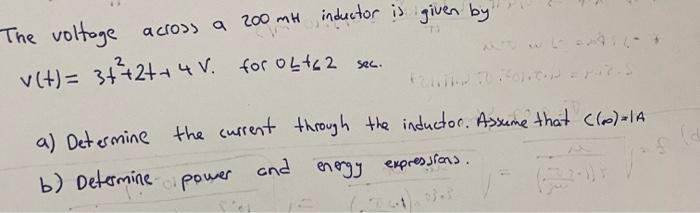 The voltage across a 200 mH inductor is given by
v(t) = 3t²+2t+4 V. for 0≤t≤2 sec.
a) Determine the current through the inductor. Assume that i(0)=1A
b) Determine power and energy expressions.